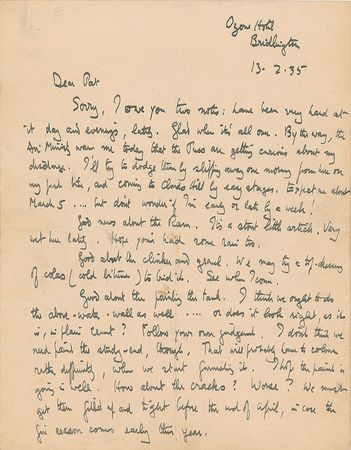 Ozone Hotel
Bridlington
13. 2. 35
Dear Pat
Sorry, I owe you two notes: have been very hard at
it day and evenings, lately. Glad when it's all over. By the way, the
Air Ministry warn me today that the Press are getting curious about my
discharge. I'll try to dodge them by slipping away one morning from here on
my push bike, and coming to Clouds Hill by easy stages. Expect me about
March 5 .... but don't wonder if I'm early or late by a week!
Good news about the Ram. It's a stout little article. Very
wet here lately. Hope you've had some rain too.
Good about the clinker and gravel. We may try a top-dressing
of colas (cold bitumen) to bind it. See when I come.
Good about the painting the tank. I think we ought to do
the above-water-wall as well .... or does it look right, as it
is, in plain cement? Follow your own judgement. I don't think we
need paint the study-end, though. That will probably have to colour
rather differently, when we start furnishing it. I hope the paint is
going on well. How about the cracks? Worse? We must
get them filled up and tight before the end of April, in case the
fire season comes early this year.